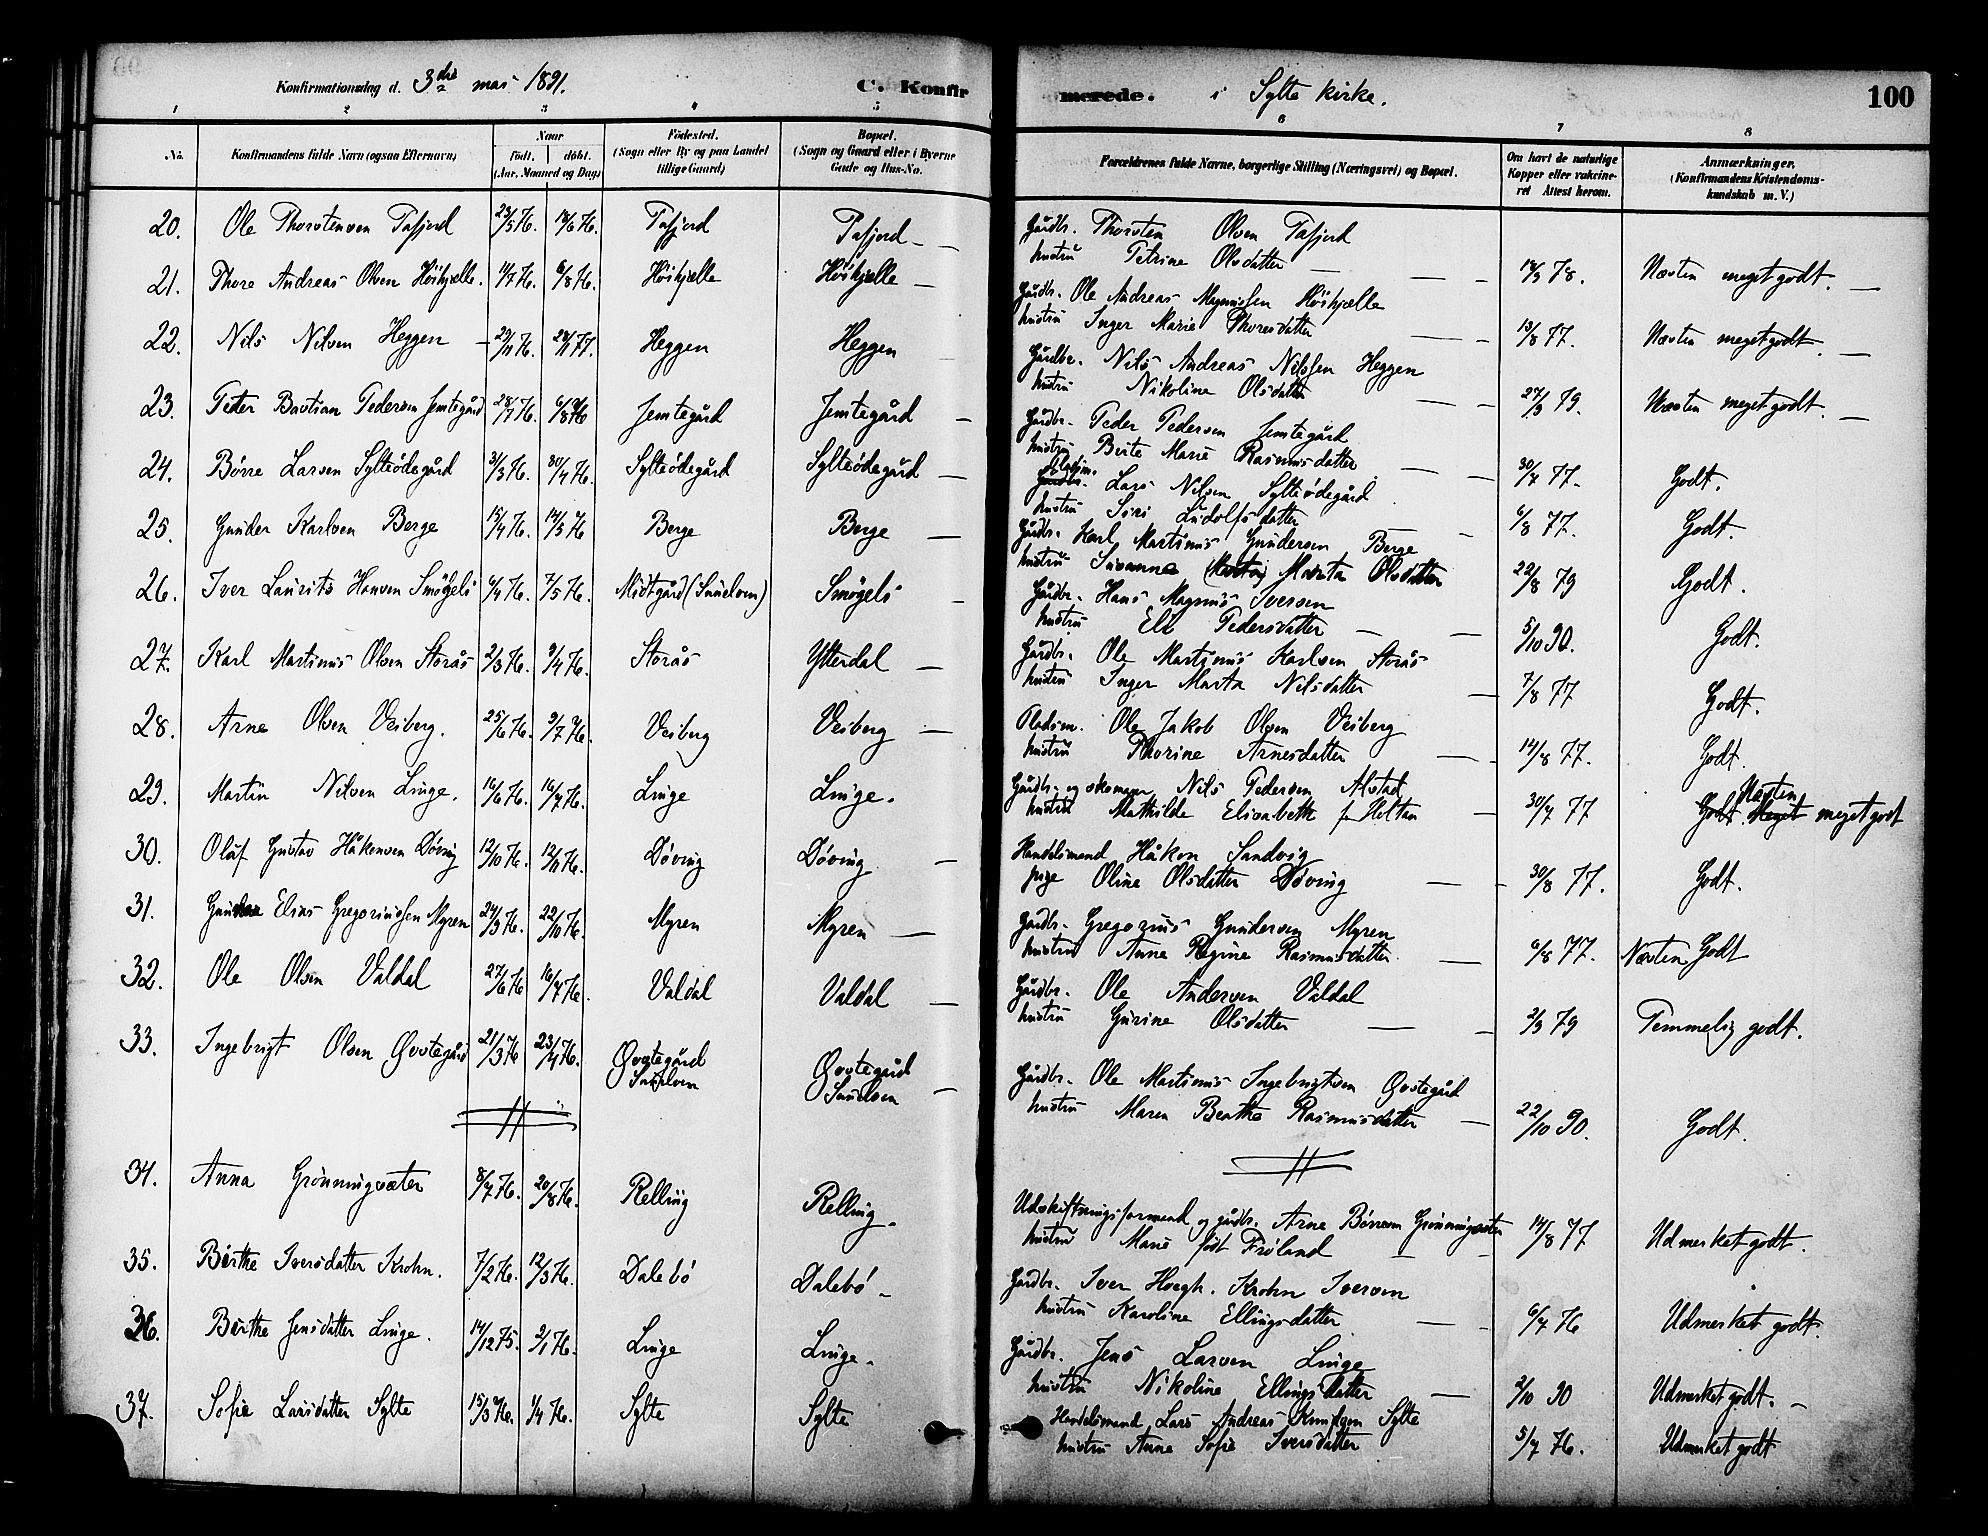 Konfirmationsdag d. 3die mai 1891. C. Konfirmerede. i Sylte kirke. 100
1 2 3 4 5 6 7 8
No. Konfirmandens fulde Navn (ogsaa Efternavn) Naar Födt. döbt. (Aar, Maaned og Dag) Födested. (Sogn eller By og paa Landet tillige Gaard) Bopæl. (Sogn og Gaard eller i Byerne Gade og Hus-No. Forældrenes fulde Navne, borgerlige Stilling (Næringsvei) og Bopæl. Om havt de naturlige Kopper eller vakcineret Attest herom. Anmærkninger. (Konfirmandens Kristendomskundskab m. V.)
20. Ole Thorstensen Tafjord 23/5 76. 18/6 76. Tafjord Tafjord - Gårdbr. Thorsten Olsen Tafjord
hustru Petrine Olsdatter 18/9 78. Næsten meget godt.
21. Thore Andreas Olsen Höihjelle. 11/7 76. 6/8 76. Höihjelle Höihjelle - Gårdbr. Ole Andreas Magnussen Höihjelle
hustru Inger Marie Thoresdatter 13/8 77. Næsten meget godt.
22. Nils Nilsen Heggen 29/11 76. 28/1 77. Heggen Heggen Gårdbr. Nils Andreas Nilssen Heggen
hustru Nikoline Olsdatter 27/9 79. Næsten meget godt.
23. Peter Bastian Pedersen Jemtegård 28/7 76. 6/8 76 Jemtegård Jemtegård - Gårdbr. Peder Pedersen Jemtegård
hustru Berte Marie Rasmusdatter 30/7 77. Godt.
24. Børre Larsen Sylteødegård 31/3 76. 30/4 76. Sylteødegård Sylteødegård - Pladsm. Lars Nilsen Sylteødegård
hustru Siri Ludolfsdatter 6/8 77. Godt.
25. Gunder Karlsen Berge 15/4 76. 14/5 76 Berge Berge - Gårdb. Karl Martinus Gundersen Berge
hustru Susanne Marta Olsdatter 22/8 79 Godt.
26. Iver Laurits Hansen Smøgeli 6/4 76. 7/5 76. Midtgård (Sunelven) Smøgeli - Gårdbr. Hans Magnus Iversen
hustru Eli Pedersdatter 5/10 90. Godt.
27. Karl Martinus Olsen Storås 2/3 76. 9/4 76. Storås Ytterdal - Gårdbr. Ole Martinus Karlsen Storås
hustru Inger Marta Nilsdatter 7/8 77 Godt.
28. Arne Olsen Veiberg. 25/6 76. 9/7 76. Veiberg Veiberg - Pladsm. Ole Jakob Olsen Veiberg
hustru Thorine Arnesdatter 14/8 77. Godt.
29. Martin Nilsen Linge. 16/6 76. 16/7 76. Linge Linge. Gårdbr. og skomager Nils Pedersen Alstad
hustru Mathilde Elisabeth f. Holtan 30/7 77 Næsten meget godt
30. Olaf Gustav Håkensen Døving 12/10 76. 12/11 76. Døving Døving - Handelsmand Håkon Sandvig
pige Oline Olsdatter Døving 30/8 77. Godt.
31. Elias Gregoriussen Myren 24/9 76. 22/10 76. Myren Myren - Gårdbr. Gregorius Gundersen Myren
hustru Anne Regine Rasmusdatter. 6/8 77. Næsten Godt
32. Ole Olsen Valdal 27/6 76 16/7 76. Valdal Valdal - Gårdbr. Ole Andersen Valdal
hustru Gurine Olsdatter 2/9 79 Temmelig godt.
33. Ingebrigt Olsen Øvstegård 21/3 76 23/4 76. Øvstegård Sunelven Øvstegård Sunelven - Gårdbr. Ole Martinus Ingebrigtsen Øvstegård
hustru Maren Berthe Rasmusdatter 22/10 90. Godt.
34. Anna Grönningsæter 8/7 76. 20/8 76. Relling Relling. Udskiftningsformand og gårdbr. Arne Børresen Grönningsæter
hustru Marie født Frøland 14/8 77 Udmerket godt.
35. Berthe Iversdatter Krohn. 7/2 76. 12/3 76. Dalebö Dalebö - Gårdbr. Iver Hoegh. Krohn Iversen
hustru Karoline Ellingsdatter 6/7 76 Udmerket godt.
36. Berthe Jensdatter Linge. 14/12 75. 2/1 76. Linge Linge. Gårdbr. Jens Larsen Linge
hustru Nikoline Ellingsdatter 2/10 90 Udmerket godt.
37. Sofie Larsdatter Sylte 15/3 76. 1/4 76. Sylte Sylte Handelsmand Lars Andreas Knudsen Sylte
hustru Anne Sofie Iversdatter 5/7 76. Udmerket godt